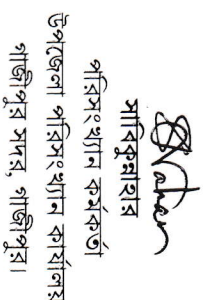 সাবিকুন্নাহার
পরিসংখ্যান কর্মকর্তা
উপজেলা পরিসংখ্যান কার্যালয়
গাজীপুর সদর, গাজীপুর।